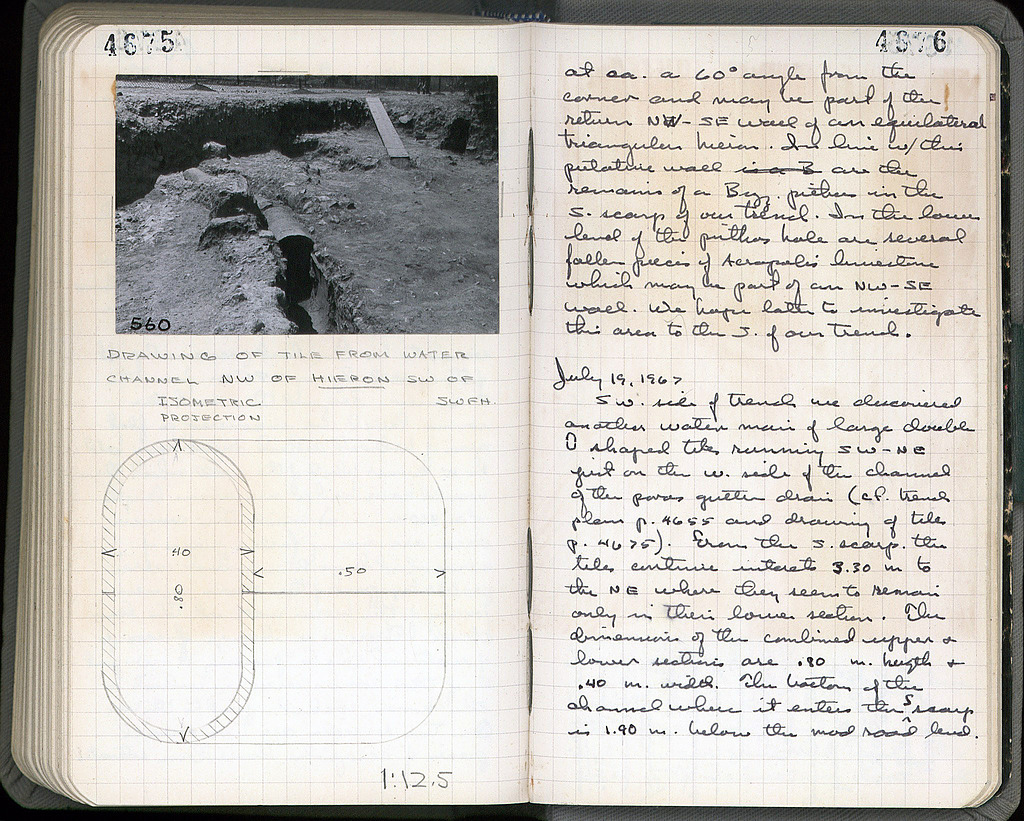 4675
560
DRAWING OF TILE FROM WATER
CHANNEL NW OF HIERON SW OF
ISOMETRIC SWFH.
PROJECTION
40
.80
.50
1:12.5
4676
at ca. a 60° angle from the
corner and may be part of the
return NW-SE wall of an equilateral
triangular hieron. In line w/ this
putative wall is a B are the
remains of a Byz. pithos in the
S. scarp of our trench. In the lower
level of the pithos hole are several
fallen pieces of Acropolis limestone
which may be part of an NW-SE
wall. We hope later to investigate
this area to the S. of our trench.
July 19, 1967
SW. side of trench we discovered
another water main of large double
0 shaped tiles running SW-NE
just on the w. side of the channel
of the poros gutter drain (cf. trench
plan p. 4655 and drawing of tiles
p. 4675). From the S. scarp the
tiles continue 3.30 m to
the NE where they seem to remain
only in their lower section. The
dimensions of the combined upper &
lower sections are .80 m. height &
.40 m. width. The bottom of the
channel where it enters the S scarp
is 1.90 m. below the mod road level.